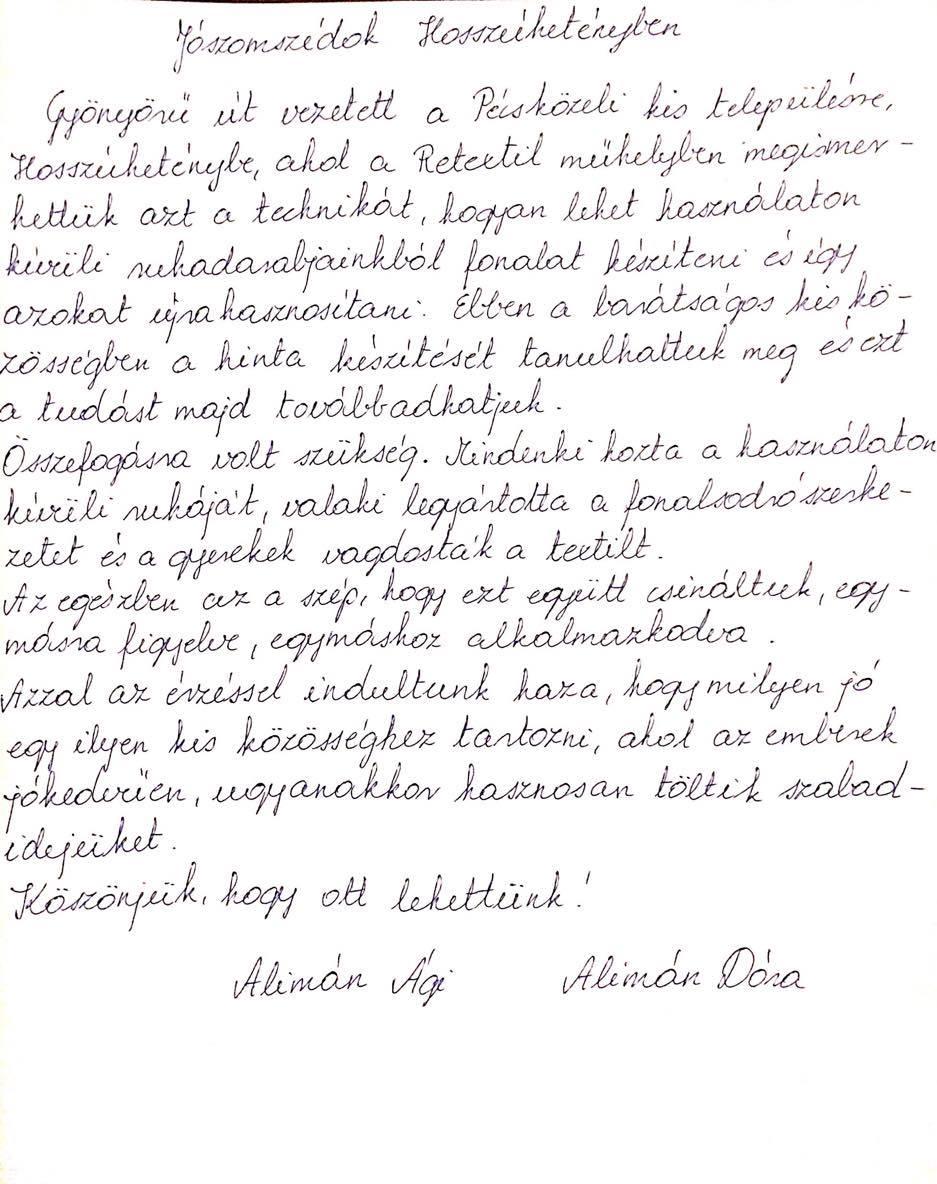 Jószomszédok Hosszúhetényben
Gyönyörű út vezetett a Pécsközeli kis településre,
Hosszúheténybe, ahol a Retextil műhelyben megismer-
hettük azt a technikát, hogyan lehet használaton
kívüli ruhadarabjainkból fonalat készíteni és így
azokat újrahasznosítani. Ebben a barátságos kis kö-
zösségben a hinta készítését tanulhattuk meg és ezt
a tudást majd továbbadhatjuk.
Összefogásra volt szükség. Mindenki hozta a használaton
kívüli ruháját, valaki legyártotta a fonalsodró szerke-
zetet és a gyerekek vagdosták a textilt.
Az egészben az a szép, hogy ezt együtt csináltuk, egy-
másra figyelve, egymáshoz alkalmazkodva.
Azzal az érzéssel indultunk haza, hogy milyen jó
egy ilyen kis közösséghez tartozni, ahol az emberek
jókedvűen, ugyanakkor hasznosan töltik szabad-
idejüket.
Köszönjük, hogy ott lehettünk!
Alimán Ági Alimán Dóra